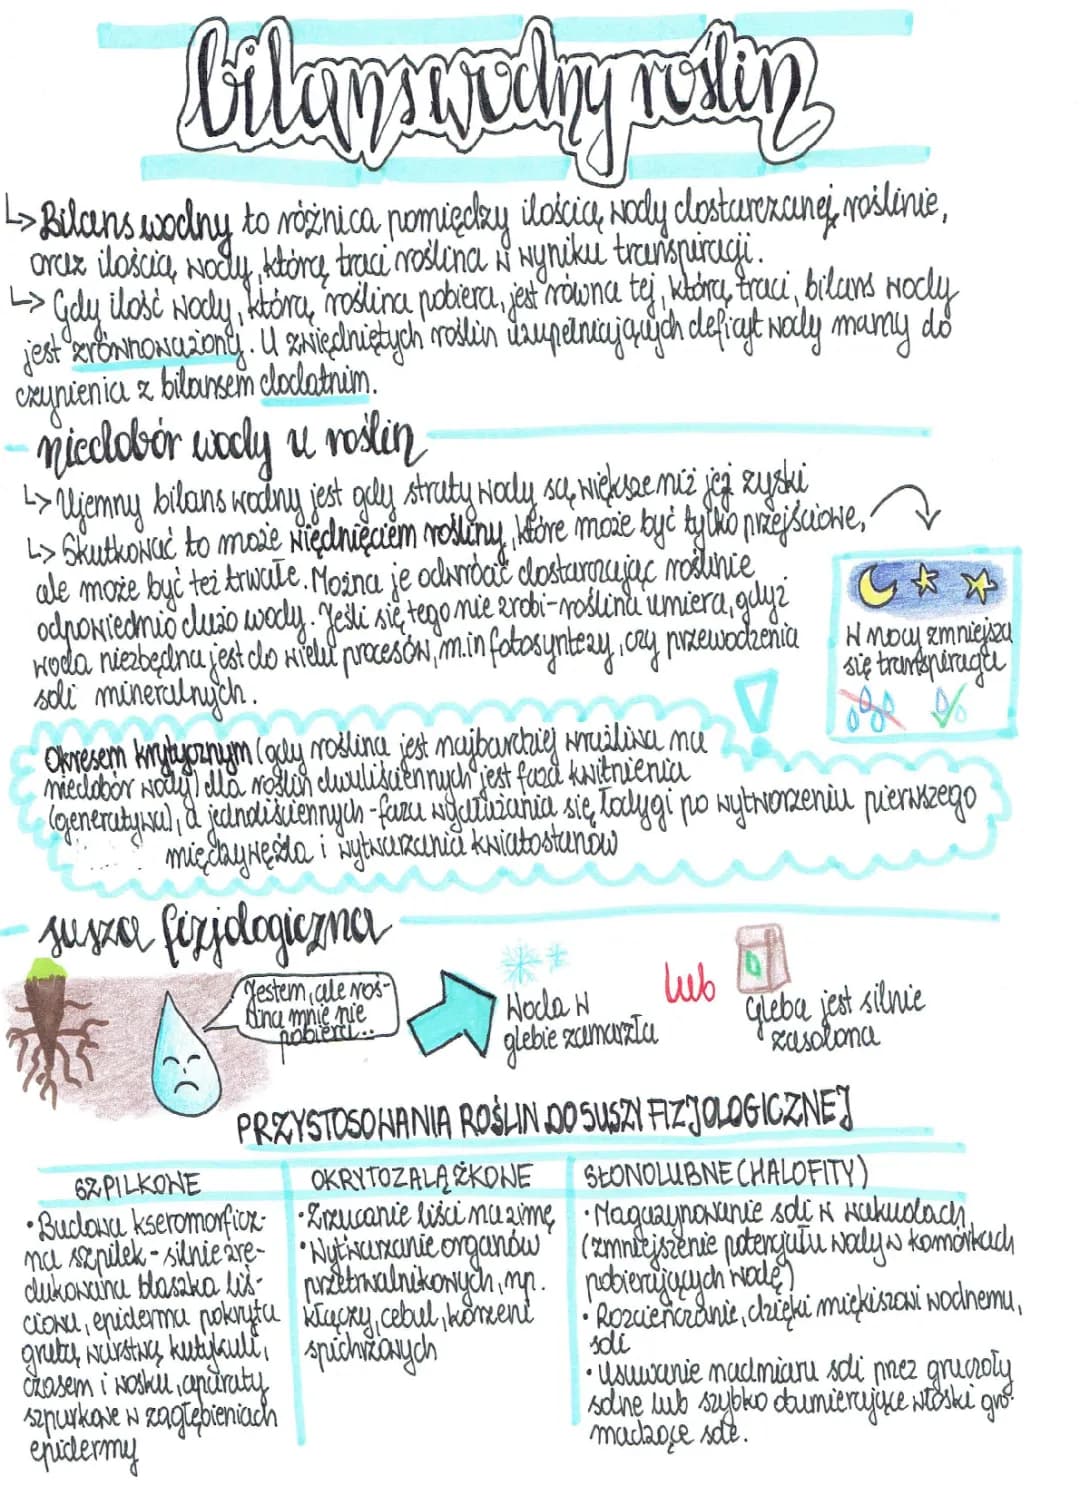 bilans wodny roślin
↳ Bilans wodny to różnica pomiędzy ilością wody dostarczanej roślinie,
oraz ilością wody, którą traci roślina w wyniku transpiracji.
↳ Gdy ilość wody, którą roślina pobiera, jest równa tej, którą traci, bilans wody
jest zrównoważony. U zwiędniętych roślin uzupełniających deficyt wody mamy do
czynienia z bilansem dodatnim.
niedobór wody u roślin
↳ Ujemny bilans wodny jest gdy straty wody są większe niż jej zyski
↳ Skutkować to może więdnięciem rośliny, które może być tylko przejściowe,
ale może być też trwałe. Można je odwrócić dostarczając roślinie
odpowiednio dużo wody. Jeśli się tego nie zrobi - roślina umiera, gdyż
woda niezbędna jest do wielu procesów, m.in fotosyntezy, czy przewodzenia
soli mineralnych.
W nocy zmniejsza
się transpiracja
!
Okresem krytycznym (gdy roślina jest najbardziej wrażliwa na
niedobór wody) dla roślin dwuliściennych jest faza kwitnienia
(generatywna), a jednoliściennych - faza wydłużania się łodygi po wytworzeniu pierwszego
międzywęźla i wytwarzania kwiatostanów
susza fizjologiczna
Jestem, ale roś-
lina mnie nie
pobiera..
Woda w
glebie zamarzła
lub
Gleba jest silnie
zasolona
PRZYSTOSOWANIA ROŚLIN DO SUSZY FIZJOLOGICZNEJ
SZPILKOWE
• Budowa kseromorficz-
na szpilek - silnie zre-
dukowana blaszka liś-
ciowa, epiderma pokryta
grubą warstwą kutykuli,
czasem i wosku, aparaty
szparkowe w zagłębieniach
epidermy
OKRYTOZALĄŻKOWE
• Zrzucanie liści na zimę
• Wytwarzanie organów
przetrwalnikowych, np.
kłączy, cebul, korzeni
spichrzowych
SŁONOLUBNE (HALOFITY)
• Magazynowanie soli w wakuolach
(zmniejszenie potencjału wody w komórkach
pobierających wodę)
• Rozcieńczanie, dzięki miękiszowi wodnemu,
soli
• Usuwanie nadmiaru soli przez gruczoły
solne lub szybko obumierające włoski gro-
madzące sole.